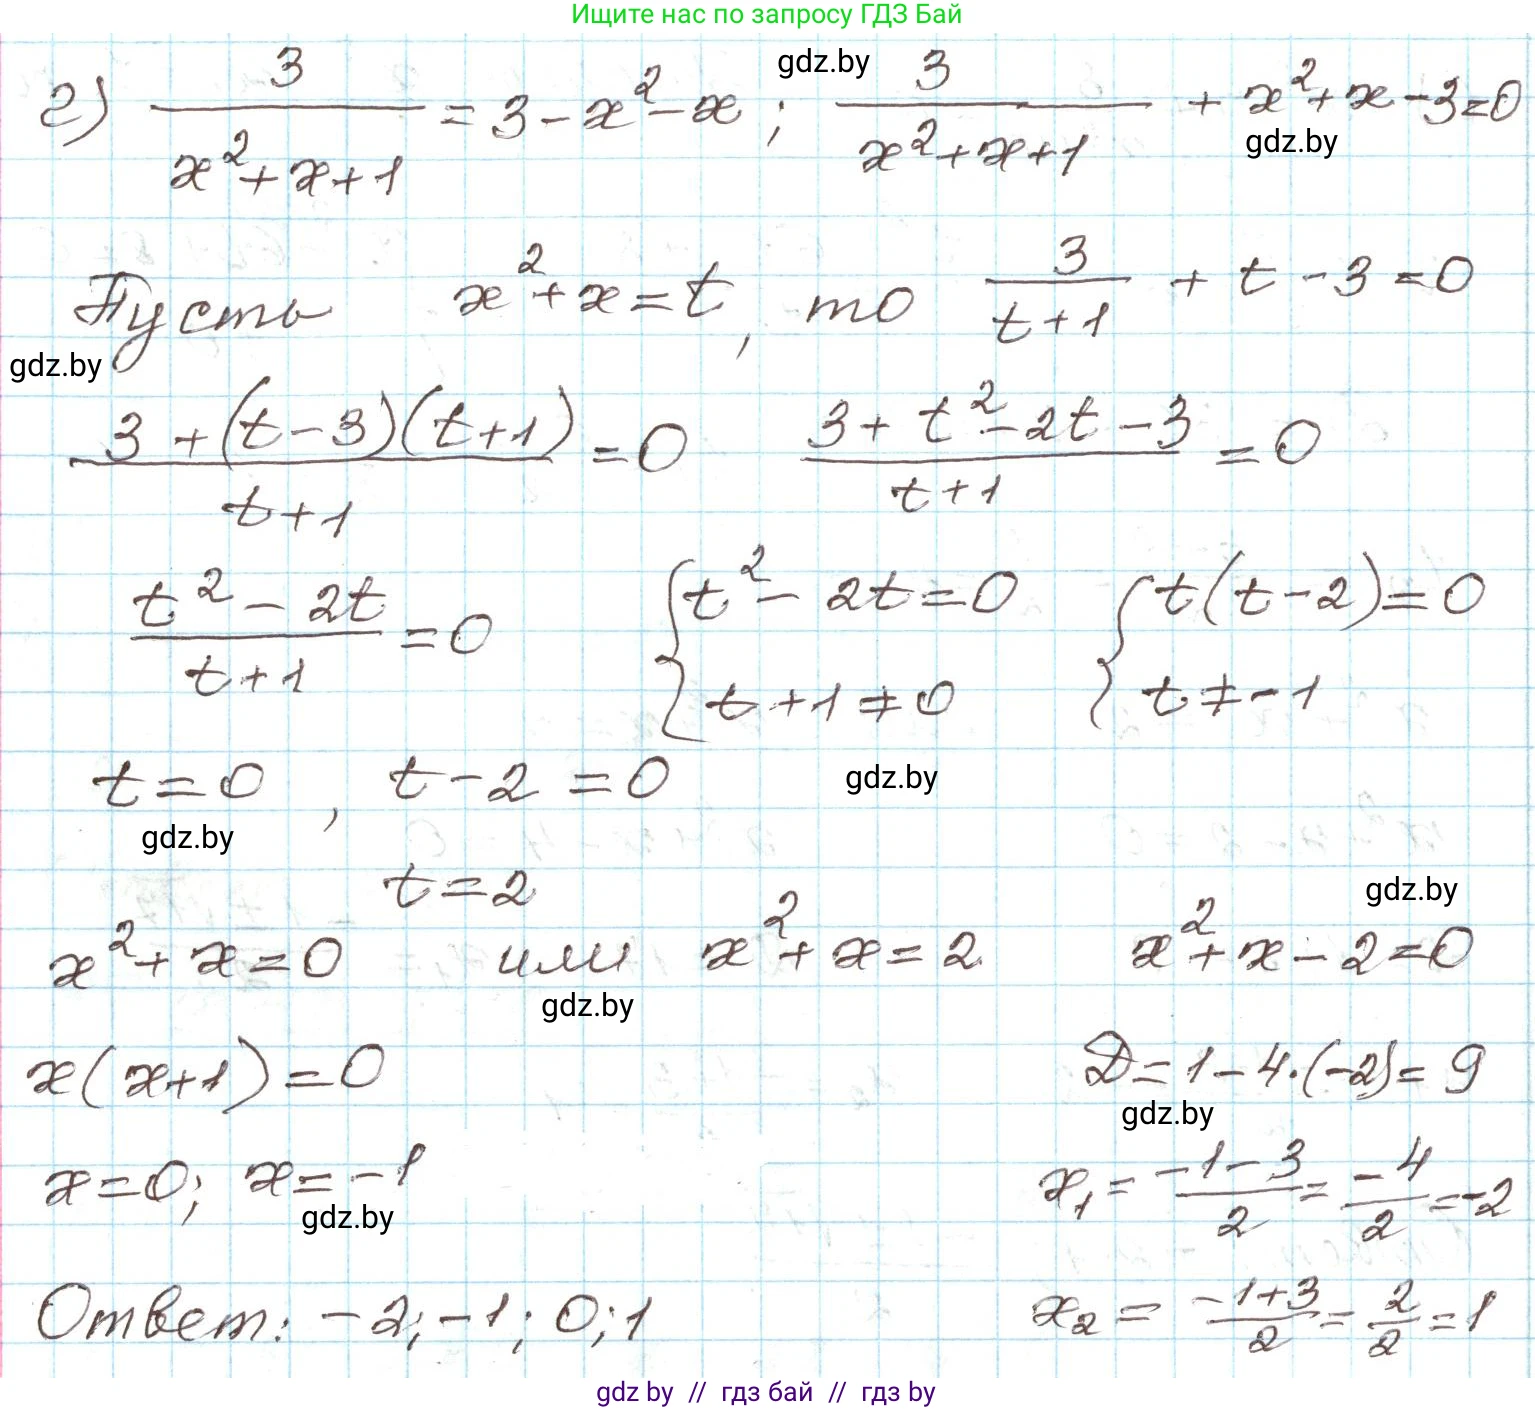 Ищите нас по запросу ГДЗ Бай
г) 3/(x²+x+1) = 3-x²-x ; 3/(x²+x+1) + x²+x-3=0
gdz.by
gdz.by
Пусть x²+x=t, то 3/(t+1) + t-3=0
gdz.by
(3+(t-3)(t+1))/(t+1) =0 (3+t²-2t-3)/(t+1) =0
(t²-2t)/(t+1) =0 { t²-2t=0 { t(t-2)=0
t+1≠0 t≠-1
t=0 , t-2=0 gdz.by
gdz.by
t=2
gdz.by
x²+x=0 или x²+x=2 x²+x-2=0
gdz.by
x(x+1)=0 D=1-4·(-2)=9
gdz.by
x=0; x=-1 x₁= (-1-3)/2 = -4/2 =-2
gdz.by
Ответ: -2;-1; 0;1 x₂= (-1+3)/2 = 2/2 =1
gdz by // гдз бай // гдз by